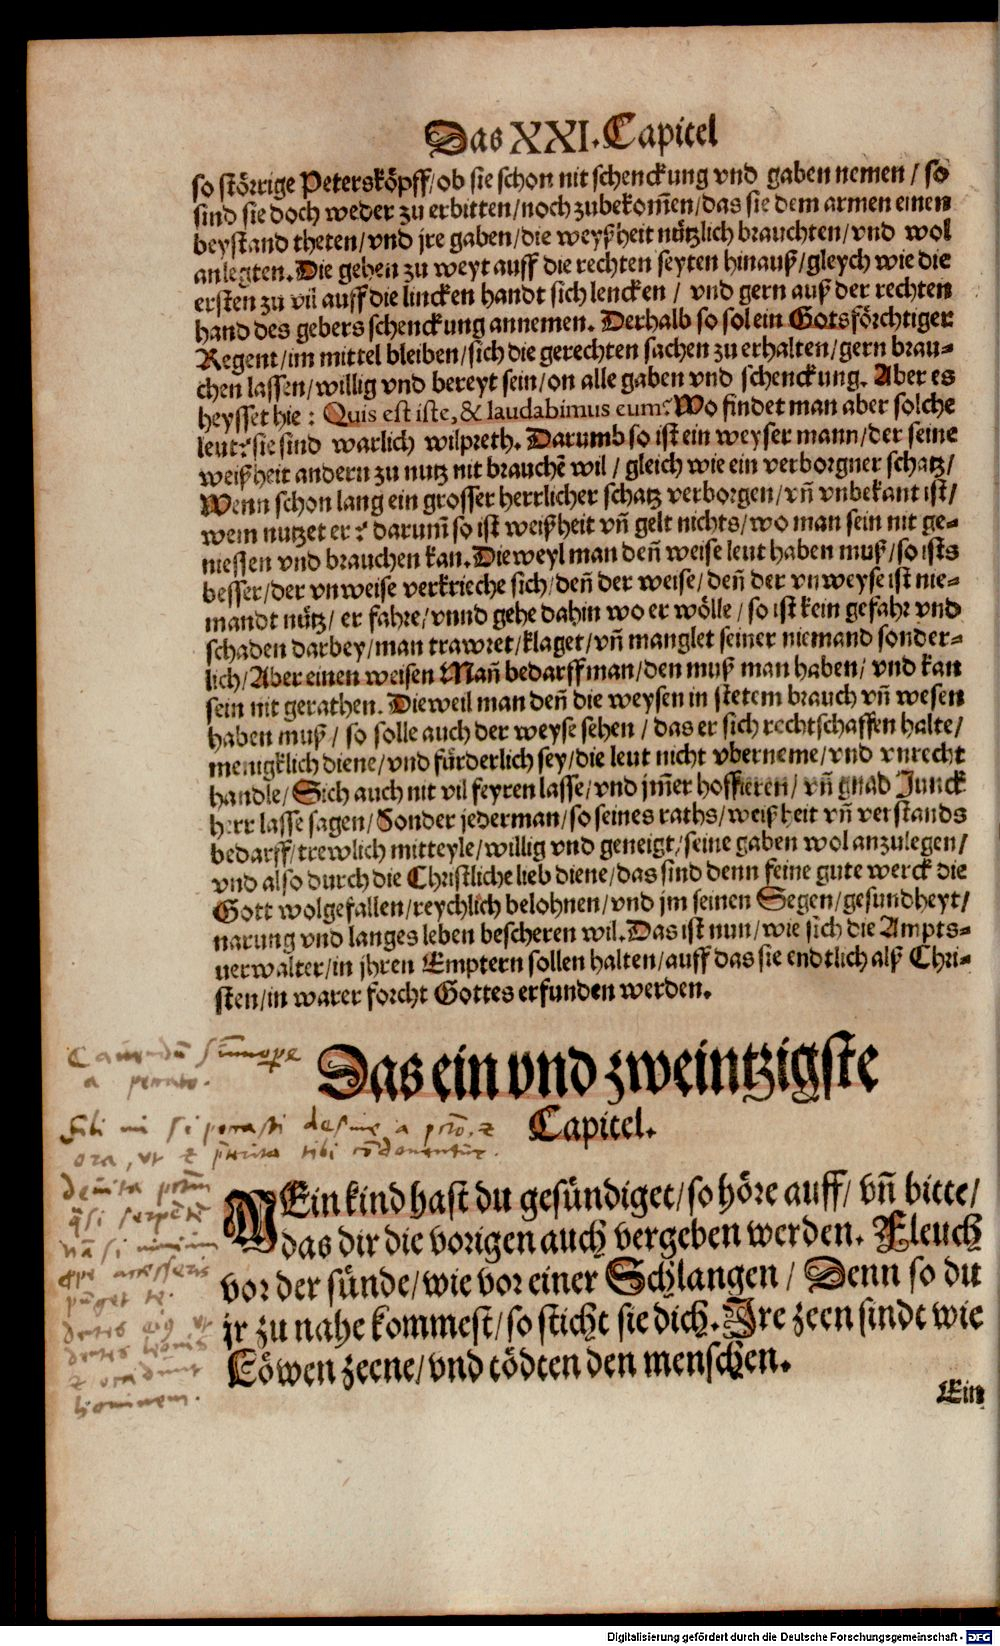 Das XXI. Capitel
so störrige Petersköpff/ob sie schon nit schenckung vnd gaben nemen / so
sind sie doch weder zu erbitten/noch zubekom̃en/das sie dem armen einen
beystand theten/vnd jre gaben/die weyßheit nützlich brauchten/vnd wol
anlegten. Die gehen zu weyt auff die rechten seyten hinauß/gleych wie die
ersten zu vil auff die lincken handt sich lencken / vnd gern auß der rechten
hand des gebers schenckung annemen. Derhalb so sol ein Gotsförchtiger
Regent/im mittel bleiben/sich die gerechten sachen zu erhalten/gern brau-
chen lassen/willig vnd bereyt sein/on alle gaben vnd schenckung. Aber es
heysset hie : Quis est iste, & laudabimus eum? Wo findet man aber solche
leut? sie sind warlich wilpreth. Darumb so ist ein weyser mann/der seine
weißheit andern zu nutz nit brauchẽ wil / gleich wie ein verborgner schatz/
Wenn schon lang ein grosser herrlicher schatz verborgen/vñ vnbekant ist/
wem nutzet er ? darum̃ so ist weißheit vñ gelt nichts/wo man sein nit ge-
niessen vnd brauchen kan. Dieweyl man deñ weise leut haben muß/so ists
besser/der vnweise verkrieche sich/deñ der weise/deñ der vnweyse ist nie-
mandt nütz/ er fahre/vnnd gehe dahin wo er wölle / so ist kein gefahr vnd
schaden darbey/man trawret/klaget/vñ manglet seiner niemand sonder-
lich/Aber einen weisen Mañ bedarff man/den muß man haben/ vnd kan
sein nit gerathen. Dieweil man deñ die weysen in stetem brauch vñ wesen
haben muß / so solle auch der weyse sehen / das er sich rechtschaffen halte/
menigklich diene/vnd fürderlich sey/die leut nicht vberneme/vnd vnrecht
handle/Sich auch nit vil feyren lasse/vnd jm̃er hoffieren/ vñ gnad Junck
herr lasse sagen/Sonder jederman/so seines raths/weißheit vñ verstands
bedarff/trewlich mitteyle/willig vnd geneigt/seine gaben wol anzulegen/
vnd also durch die Christliche lieb diene/das sind denn feine gute werck die
Gott wolgefallen/reychlich belohnen/vnd jm seinen Segen/gesundheyt/
narung vnd langes leben bescheren wil. Das ist nun/wie sich die Ampts-
uerwalter/in jhren Emptern sollen halten/auff das sie endtlich alß Chri-
sten/in warer forcht Gottes erfunden werden.
Das ein vnd zweintzigste
Capitel.
a peccato.
Fili mi si peccasti desine a
ora, ut
MEin kind hast du gesündiget/so höre auff/ vñ bitte/
das dir die vorigen auch vergeben werden. Fleuch
vor der sünde/wie vor einer Schlangen / Denn so du
jr zu nahe kommest/so sticht sie dich. Jre zeen sindt wie
Löwen zeene/vnd tödten den menschen.
si
te.
dentes
dentes leonis
hominem.
Ein
Digitalisierung gefördert durch die Deutsche Forschungsgemeinschaft - DFG